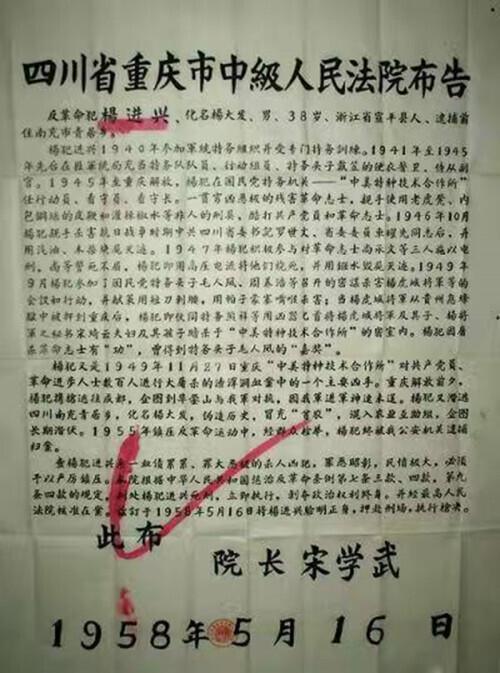 四川省重庆市中級人民法院布告
反革命犯楊进兴、化名楊大发、男、38岁、浙江省宣平县人、逮捕前
住南充市青居乡。
楊犯进兴1940年参加軍統特务組织并受专门特务訓練。1941年至1945
年先后在
特务队队員、行动組員、特务头子戴笠的便衣警卫、侍从副
官。1945年至重庆解放，楊犯在国民党特务机关——“中美特种技术合作所”
任行动員、看守員、看守长。一貫穷凶极恶的残害革命志士，親手使用老虎凳、内
包鋼絲的皮鞭和灌辣椒水等非人的刑具，酷打共产党員和革命志士。1946年10月
楊犯親手杀害抗日战争时期中共四川省委书記罗世文、省委委員車耀先同志后，并
用汽油、木柴焚尸灭迹。1947年楊犯积极参与对革命志士尚承文等三人施以电
刑，尚等誓死不屈，楊犯即用高压电流将他们烧死，并用鏹水毁尸灭迹。1949年
9月楊犯参加了国民党特务头子毛人凤、周养浩等召开的密謀杀害楊虎城将軍等的
会議和行动，并献策用短刀刺腰，用帕子蒙嘴喉杀害；当楊虎城将軍从貴州息烽
獄中被押到重庆后，楊犯即伙同特务熊祥等用凶器匕首将楊虎城将軍及其子、楊将
軍之秘书宋綺云夫妇及其孩子暗杀于“中美特种技术合作所”的密室内。楊犯因屠
杀革命志士有“功”，曾得到特务头子毛人凤的“嘉奖”。
楊犯又是1949年11月27日重庆“中美特种技术合作所”对共产党員、
革命进步人士数百人进行大屠杀的滔滔血案中的一个主要凶手。重庆解放前夕，
楊犯携槍逃往成都，企图到
与我軍对抗，因我軍进軍神速未逞。楊犯又潜逃
四川南充青居乡，化名楊大发，伪造历史，冒充“貧农”，混入农业互助組，企图
长期潜伏。1955年鎮压反革命运动中，經群众检举，楊犯終被我公安机关逮捕
归案。
查楊犯进兴是一血債累累、罪大恶极的杀人凶犯，罪恶昭彰，民憤极大，必須
予以严厉鎮压。本院根据中华人民共和国惩治反革命条例第七条三款、四款、第九
条四款的規定，判处楊进兴死刑，立即执行，剥夺政治权利終身。并經最高人民
法院核准在案。兹訂于1958年5月16日将楊进兴驗明正身，押赴刑场，执行槍决。
此布
院长宋学武
1958年5月16日